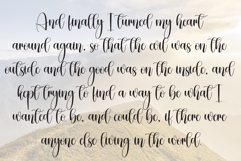 And finally I turned my heart
around again, so that the evil was on the
outside and the good was on the inside, and
kept trying to find a way to be what I
wanted to be, and could be, if there were
anyone else living in the world.